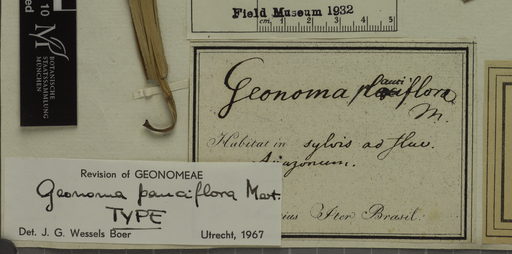 Field Museum 1932
cm. 1 2 3 4 5
10
M
BOTANISCHE
STAATSSAMMLUNG
MÜNCHEN
Geonoma pauciflora
M.
Habitat in sylvis ad fluv.
Amazonum.
Iter Brasil.
Revision of GEONOMEAE
Geonoma pauciflora Mart.
TYPE
Det. J. G. Wessels Boer Utrecht, 1967